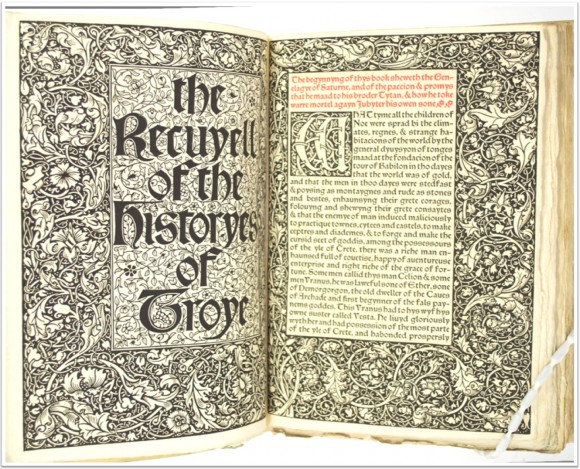 the
Recuyell
of the
historyes
of
Troye
The begynnyng of thys book sheweth the Gen-
elagye of Saturne, and of the paccion & promys
that he maad to his broder Tytan, & how he toke
warre mortel agayn Jubyter his owen sone
WHAT tyme all the children of
Noe were sprad bi the clim-
ates, regnes, & strange ha-
bitacions of the world by the
general dyuysyon of tonges
maad at the fondacion of the
tour of Babilon in tho dayes
that the world was of gold,
and that the men in thoo dayes were stedfast
& poysing as montaygnes and rude as stones
and bestes, enhaunsyng their grete corages,
folouyng and shewyng their grete consaytes
& that the enemye of man induced maliciously
to practique townes, cytees and castels, to make
ceptres and diademes, & to forge and make the
cursid sect of goddis, among the possessours
of the yle of Crete, there was a riche man en-
haunsed full of couetise, happy of auentureuse
enterprise and right riche of the grace of for-
tune. Some men callid thys man Celion & some
men Vranus, he was lawful sone of Ether, sone
of Demorgorgon, the old dweller of the Caues
of Archade and first begynner of the fals pay-
nems goddes. This Vranus had to hys wyf hys
owne suster called Vesta. He liuyd gloriously
wyth her and had possession of the most parte
of the yle of Crete, and habonded prospersly